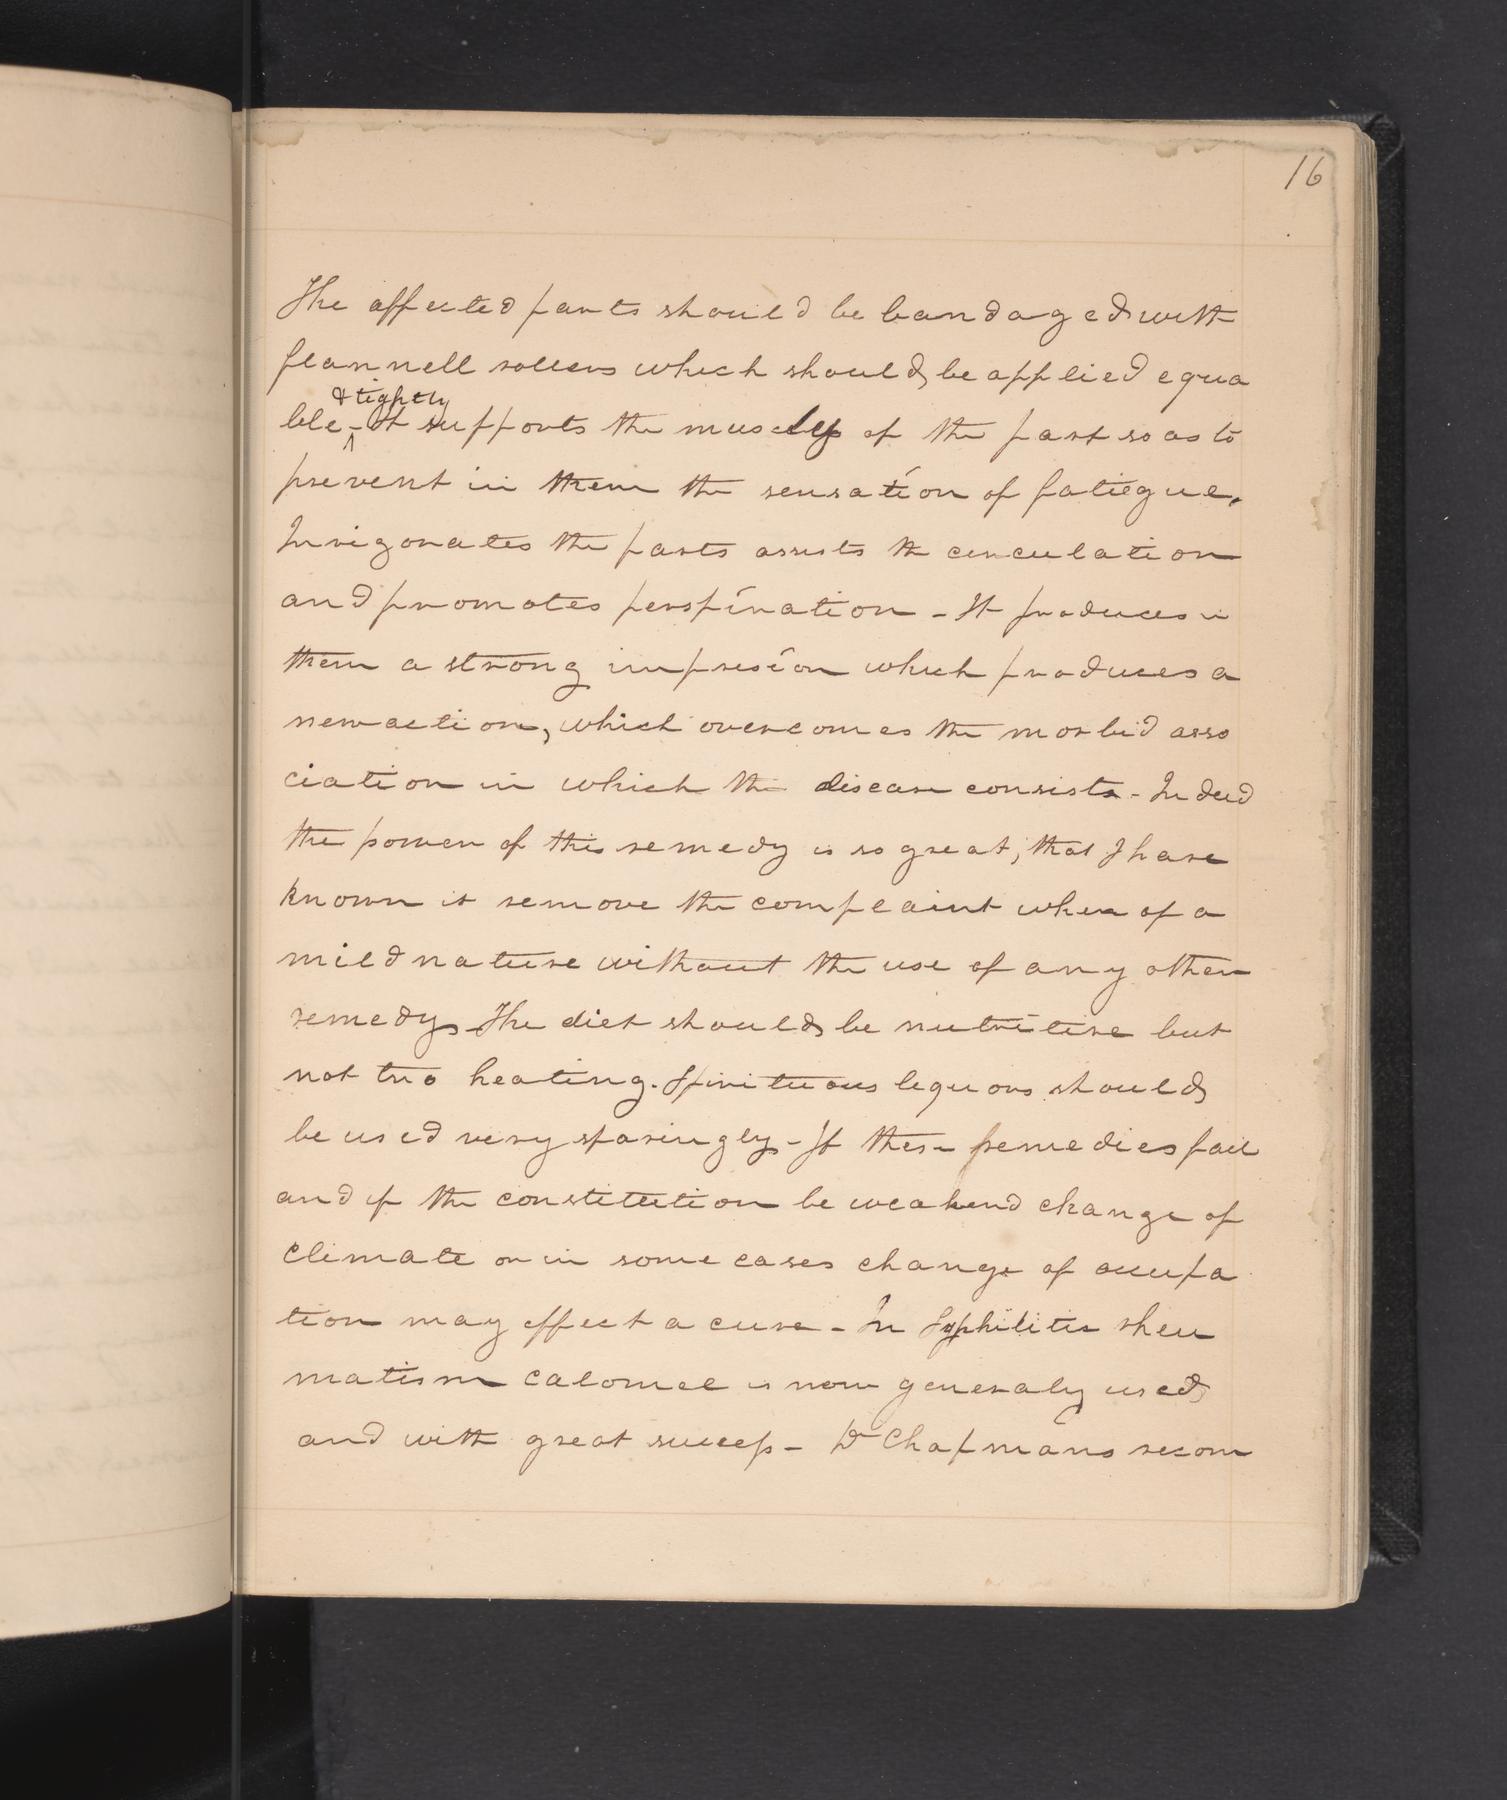 16
The affected parts should be bandaged with
flannell rollers which should be applied equa
& tightly
ble - It supports the muscles of the part so as to
prevent in them the sensation of fatiegue.
Invigorates the parts assists the circulation
and promotes perspiration - It produces in
them a strong impresion which produces a
new action, which overcomes the morbid asso
ciation in which the disease consists - Indeed
the power of this remedy is so great, that I have
known it remove the complaint when of a
mild nature without the use of any other
remedy. The diet should be nutritive but
not too heating. Spirituous liquors should
be used very sparingly - If these remedies fail
and if the constitution be weakend change of
climate or in some cases change of occupa
tion may effect a cure - In Syphilitic rheu
matism calomel is now generaly used
and with great success - Dr Chapmans recom